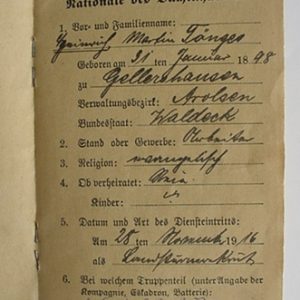 Nationale des Buchinhabers
1. Vor- und Familienname:
Heinrich Martin Tönges
Geboren am 31 ten Januar 1898
zu Gellershausen
Verwaltungsbezirk: Arolsen
Bundesstaat: Waldeck
2. Stand oder Gewerbe: Arbeiter
3. Religion: evangelisch
4. Ob verheiratet: Nein
Kinder:
5. Datum und Art des Diensteintritts:
Am 28 ten November 1916
als Landsturmrekrut
6. Bei welchem Truppenteil (unter Angabe der
Kompagnie, Eskadron, Batterie):